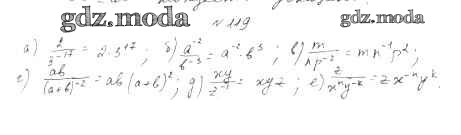 gdz.moda gdz.moda
№ 119
а) 2/3⁻¹⁷ = 2·3¹⁷; б) a⁻²/b⁻³ = a⁻²·b³; в) m/np⁻² = mn⁻¹p²;
г) ab/(a+b)⁻² = ab(a+b)²; д) xy/z⁻¹ = xyz; е) z/xⁿy⁻ᵏ = zx⁻ⁿyᵏ.